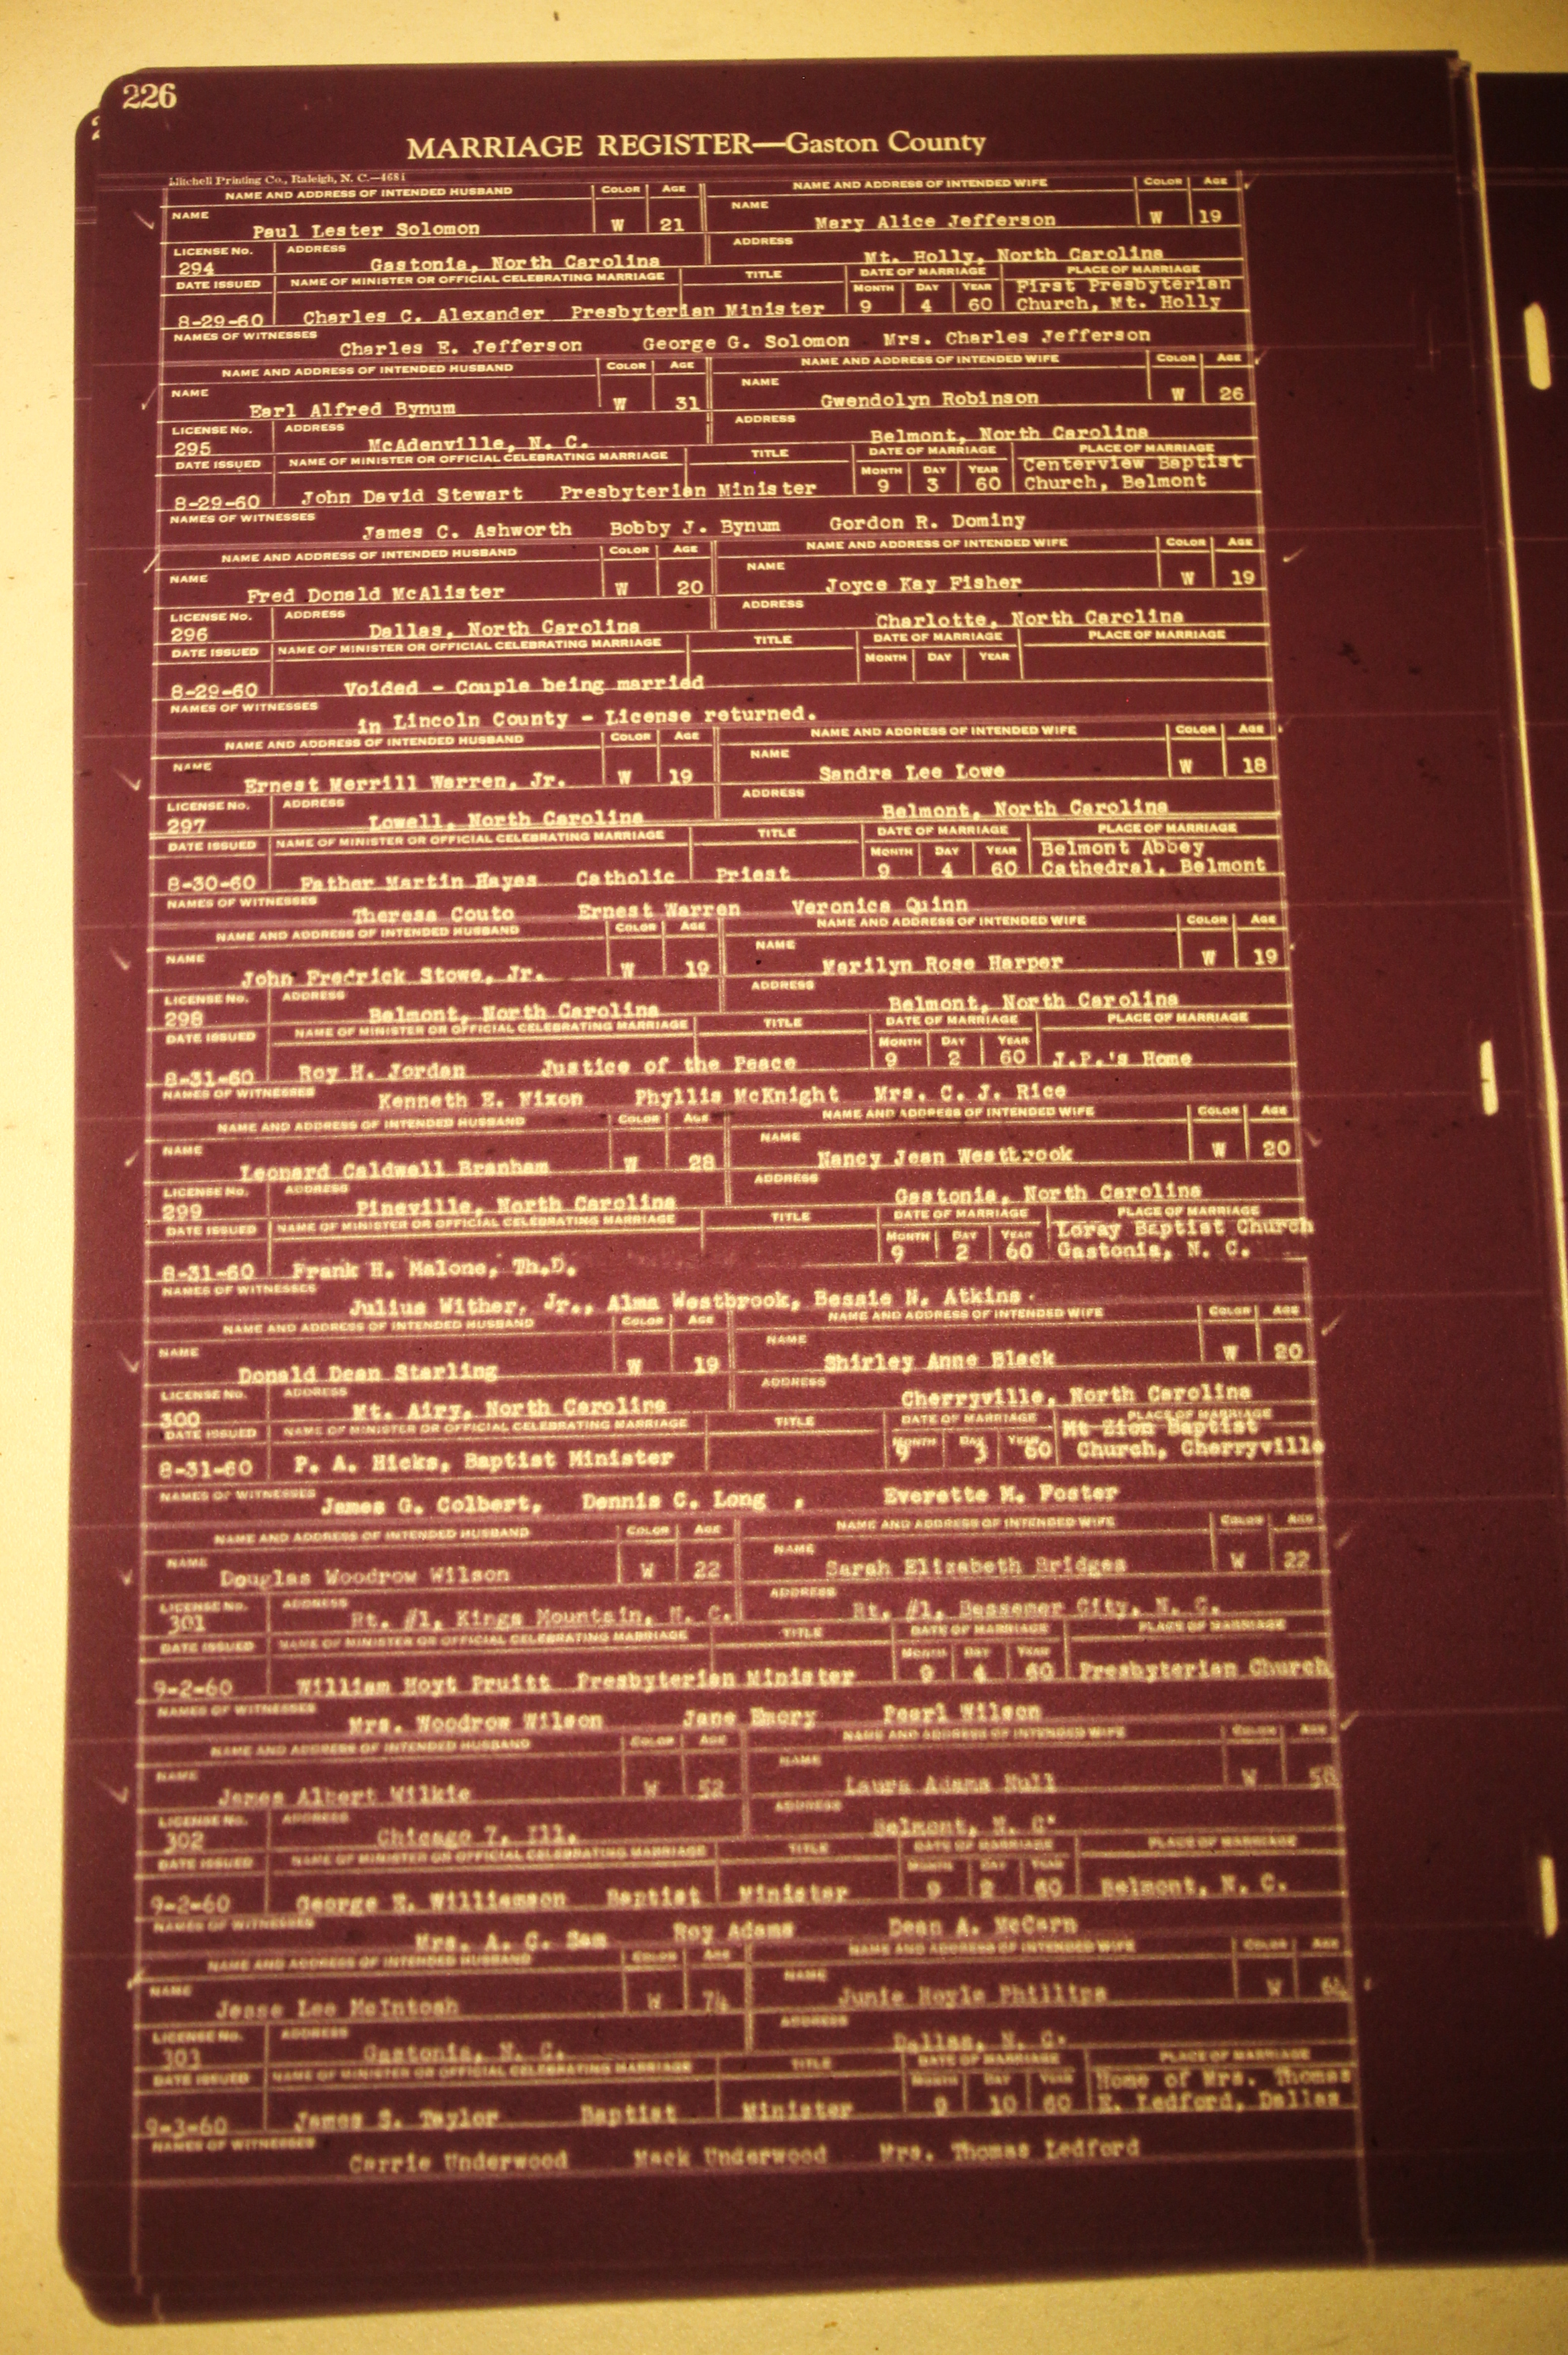 226
MARRIAGE REGISTER—Gaston County
Mitchell Printing Co., Raleigh, N. C.—4681
NAME AND ADDRESS OF INTENDED HUSBAND COLOR AGE NAME AND ADDRESS OF INTENDED WIFE COLOR AGE
NAME Paul Lester Solomon W 21 NAME Mary Alice Jefferson W 19
LICENSE No. 294 ADDRESS Gastonia, North Carolina ADDRESS Mt. Holly, North Carolina
DATE ISSUED NAME OF MINISTER OR OFFICIAL CELEBRATING MARRIAGE TITLE DATE OF MARRIAGE PLACE OF MARRIAGE
MONTH DAY YEAR First Presbyterian
8-29-60 Charles C. Alexander Presbyterian Minister 9 4 60 Church, Mt. Holly
NAMES OF WITNESSES Charles E. Jefferson George G. Solomon Mrs. Charles Jefferson
NAME AND ADDRESS OF INTENDED HUSBAND COLOR AGE NAME AND ADDRESS OF INTENDED WIFE COLOR AGE
NAME Earl Alfred Bynum W 31 NAME Gwendolyn Robinson W 26
LICENSE No. 295 ADDRESS McAdenville, N. C. ADDRESS Belmont, North Carolina
DATE ISSUED NAME OF MINISTER OR OFFICIAL CELEBRATING MARRIAGE TITLE DATE OF MARRIAGE PLACE OF MARRIAGE
MONTH DAY YEAR Centerview Baptist
8-29-60 John David Stewart Presbyterian Minister 9 3 60 Church, Belmont
NAMES OF WITNESSES James C. Ashworth Bobby J. Bynum Gordon R. Dominy
NAME AND ADDRESS OF INTENDED HUSBAND COLOR AGE NAME AND ADDRESS OF INTENDED WIFE COLOR AGE
NAME Fred Donald McAlister W 20 NAME Joyce Kay Fisher W 19
LICENSE No. 296 ADDRESS Dallas, North Carolina ADDRESS Charlotte, North Carolina
DATE ISSUED NAME OF MINISTER OR OFFICIAL CELEBRATING MARRIAGE TITLE DATE OF MARRIAGE PLACE OF MARRIAGE
MONTH DAY YEAR
8-29-60 Voided - Couple being married
NAMES OF WITNESSES in Lincoln County - License returned.
NAME AND ADDRESS OF INTENDED HUSBAND COLOR AGE NAME AND ADDRESS OF INTENDED WIFE COLOR AGE
NAME Ernest Merrill Warren, Jr. W 19 NAME Sandra Lee Lowe W 18
LICENSE No. 297 ADDRESS Lowell, North Carolina ADDRESS Belmont, North Carolina
DATE ISSUED NAME OF MINISTER OR OFFICIAL CELEBRATING MARRIAGE TITLE DATE OF MARRIAGE PLACE OF MARRIAGE
MONTH DAY YEAR Belmont Abbey
8-30-60 Father Martin Hayes Catholic Priest 9 4 60 Cathedral, Belmont
NAMES OF WITNESSES Theresa Couto Ernest Warren Veronica Quinn
NAME AND ADDRESS OF INTENDED HUSBAND COLOR AGE NAME AND ADDRESS OF INTENDED WIFE COLOR AGE
NAME John Fredrick Stowe, Jr. W 19 NAME Marilyn Rose Harper W 19
LICENSE No. 298 ADDRESS Belmont, North Carolina ADDRESS Belmont, North Carolina
DATE ISSUED NAME OF MINISTER OR OFFICIAL CELEBRATING MARRIAGE TITLE DATE OF MARRIAGE PLACE OF MARRIAGE
MONTH DAY YEAR
8-31-60 Roy H. Jordan Justice of the Peace 9 2 60 J.P.'s Home
NAMES OF WITNESSES Kenneth E. Nixon Phyllis McKnight Mrs. C. J. Rice
NAME AND ADDRESS OF INTENDED HUSBAND COLOR AGE NAME AND ADDRESS OF INTENDED WIFE COLOR AGE
NAME Leonard Caldwell Branham W 28 NAME Nancy Jean Westbrook W 20
LICENSE No. 299 ADDRESS Pineville, North Carolina ADDRESS Gastonia, North Carolina
DATE ISSUED NAME OF MINISTER OR OFFICIAL CELEBRATING MARRIAGE TITLE DATE OF MARRIAGE PLACE OF MARRIAGE
MONTH DAY YEAR Loray Baptist Church
8-31-60 Frank H. Malone, Th.D. 9 2 60 Gastonia, N. C.
NAMES OF WITNESSES Julius Wither, Jr., Alma Westbrook, Bessie N. Atkins.
NAME AND ADDRESS OF INTENDED HUSBAND COLOR AGE NAME AND ADDRESS OF INTENDED WIFE COLOR AGE
NAME Donald Dean Starling W 19 NAME Shirley Anne Black W 20
LICENSE No. 300 ADDRESS Mt. Airy, North Carolina ADDRESS Cherryville, North Carolina
DATE ISSUED NAME OF MINISTER OR OFFICIAL CELEBRATING MARRIAGE TITLE DATE OF MARRIAGE PLACE OF MARRIAGE
MONTH DAY YEAR Mt Zion Baptist
8-31-60 P. A. Hicks, Baptist Minister 9 3 60 Church, Cherryville
NAMES OF WITNESSES James G. Colbert, Dennis C. Long , Everette M. Foster
NAME AND ADDRESS OF INTENDED HUSBAND COLOR AGE NAME AND ADDRESS OF INTENDED WIFE COLOR AGE
NAME Douglas Woodrow Wilson W 22 NAME Sarah Elizabeth Bridges W 22
LICENSE No. 301 ADDRESS Rt. #1, Kings Mountain, N. C. ADDRESS Rt. #1, Bessemer City, N. C.
DATE ISSUED NAME OF MINISTER OR OFFICIAL CELEBRATING MARRIAGE TITLE DATE OF MARRIAGE PLACE OF MARRIAGE
MONTH DAY YEAR
9-2-60 William Hoyt Pruitt Presbyterian Minister 9 4 60 Presbyterian Church
NAMES OF WITNESSES Mrs. Woodrow Wilson Jane Emory Pearl Wilson
NAME AND ADDRESS OF INTENDED HUSBAND COLOR AGE NAME AND ADDRESS OF INTENDED WIFE COLOR AGE
NAME James Albert Wilkie W 52 NAME Laura Adams Null W
LICENSE No. 302 ADDRESS Chicago 7, Ill. ADDRESS Belmont, N. C.
DATE ISSUED NAME OF MINISTER OR OFFICIAL CELEBRATING MARRIAGE TITLE DATE OF MARRIAGE PLACE OF MARRIAGE
MONTH DAY YEAR
9-2-60 George E. Williamson Baptist Minister 9 2 60 Belmont, N. C.
NAMES OF WITNESSES Mrs. A. C. Sam Roy Adams Dean A. McCarn
NAME AND ADDRESS OF INTENDED HUSBAND COLOR AGE NAME AND ADDRESS OF INTENDED WIFE COLOR AGE
NAME Jesse Lee McIntosh W 74 NAME Junie Hoyle Phillips W 64
LICENSE No. 303 ADDRESS Gastonia, N. C. ADDRESS Dallas, N. C.
DATE ISSUED NAME OF MINISTER OR OFFICIAL CELEBRATING MARRIAGE TITLE DATE OF MARRIAGE PLACE OF MARRIAGE
MONTH DAY YEAR Home of Mrs. Thomas
9-3-60 James S. Taylor Baptist Minister 9 10 60 E. Ledford, Dallas
NAMES OF WITNESSES Carrie Underwood Mack Underwood Mrs. Thomas Ledford